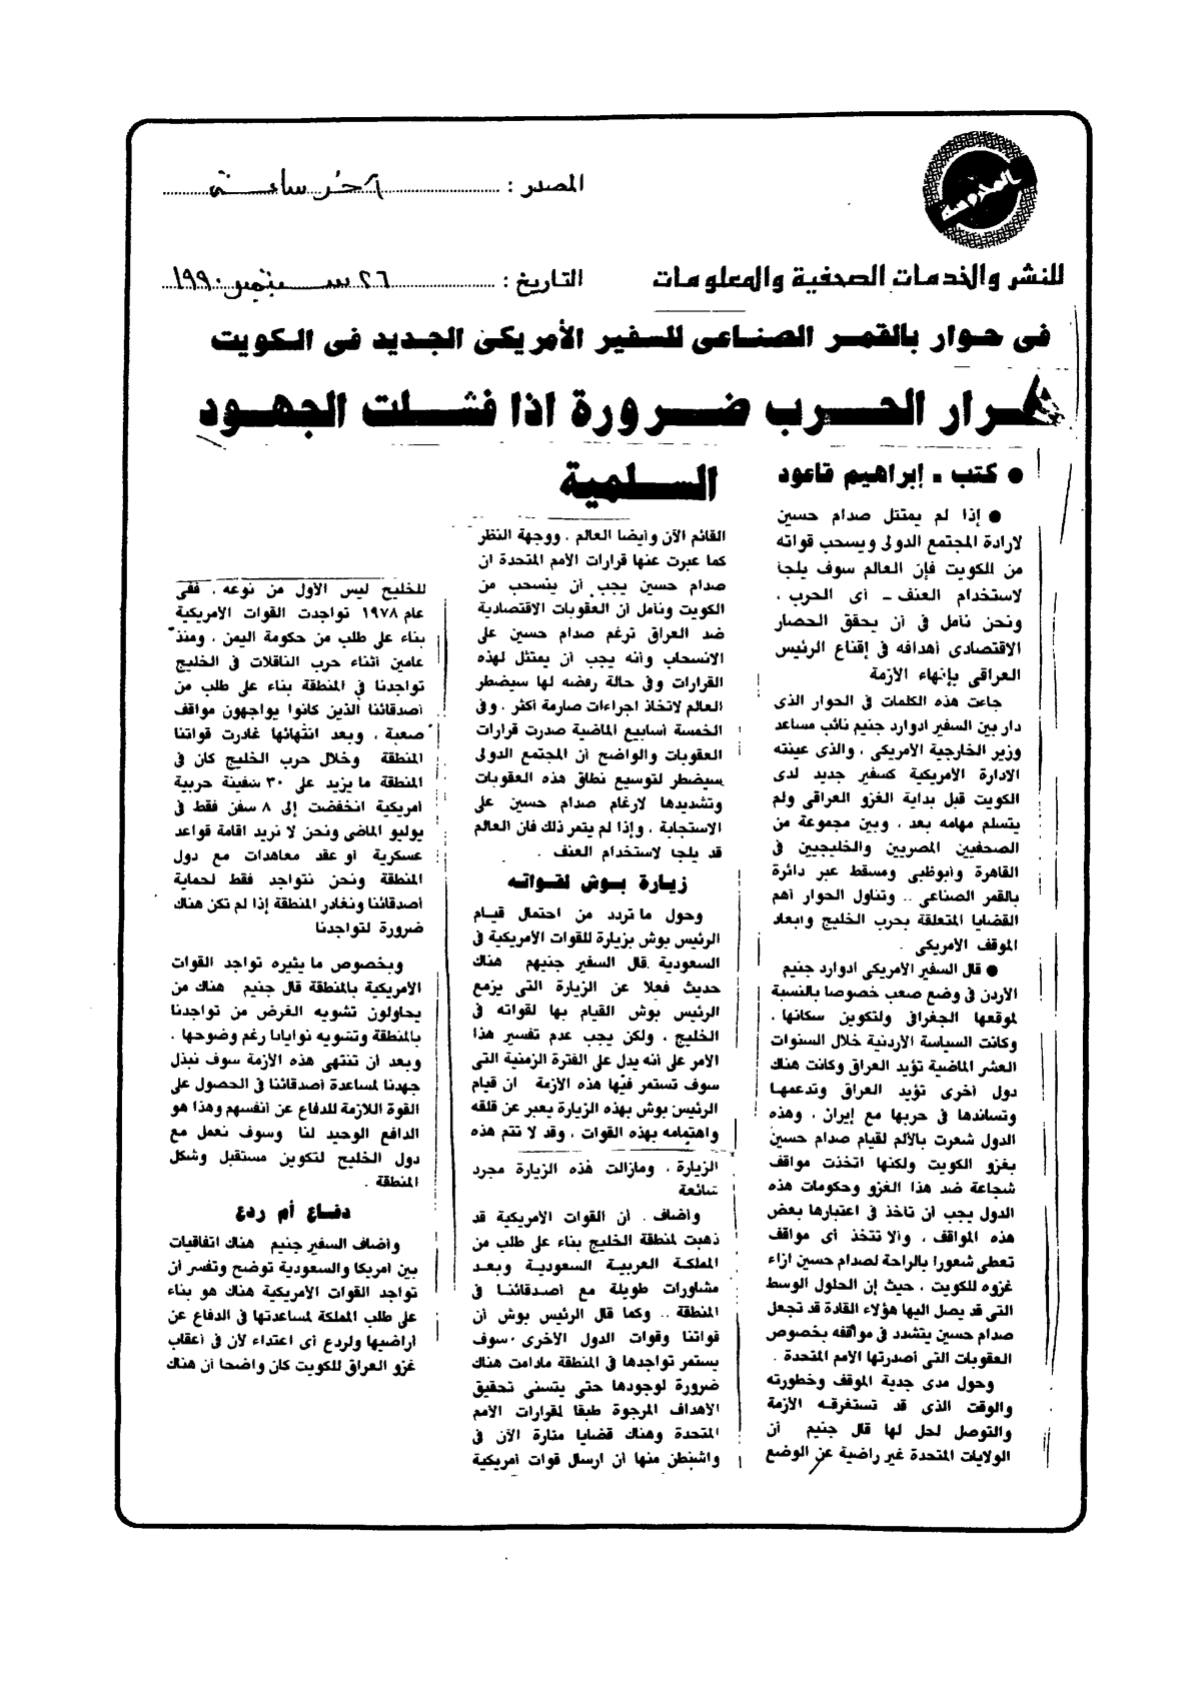 المصدر : آخر ساعة
للنشر والخدمات الصحفية والمعلومات
التاريخ : ٢٦ سبتمبر ١٩٩٠
فى حوار بالقمر الصناعى للسفير الأمريكى الجديد فى الكويت
قرار الحرب ضرورة اذا فشلت الجهود
السلمية
● كتب - إبراهيم قاعود
● إذا لم يمتثل صدام حسين
لارادة المجتمع الدولى ويسحب قواته
من الكويت فإن العالم سوف يلجأ
لاستخدام العنف - أى الحرب .
ونحن نأمل فى أن يحقق الحصار
الاقتصادى أهدافه فى إقناع الرئيس
العراقى بإنهاء الأزمة
جاءت هذه الكلمات فى الحوار الذى
دار بين السفير ادوارد جنيم نائب مساعد
وزير الخارجية الأمريكى ، والذى عينته
الادارة الأمريكية كسفير جديد لدى
الكويت قبل بداية الغزو العراقى ولم
يتسلم مهامه بعد ، وبين مجموعة من
الصحفيين المصريين والخليجيين فى
القاهرة وأبوظبى ومسقط عبر دائرة
بالقمر الصناعى .. وتناول الحوار أهم
القضايا المتعلقة بحرب الخليج وابعاد
الموقف الأمريكى .
● قال السفير الأمريكى ادوارد جنيم
الأردن فى وضع صعب خصوصا بالنسبة
لموقعها الجغرافى ولتكوين سكانها .
وكانت السياسة الأردنية خلال السنوات
العشر الماضية تؤيد العراق وكانت هناك
دول أخرى تؤيد العراق وتدعمها
وتساندها فى حربها مع إيران ، وهذه
الدول شعرت بالألم لقيام صدام حسين
بغزو الكويت ولكنها اتخذت مواقف
شجاعة ضد هذا الغزو وحكومات هذه
الدول يجب أن تأخذ فى اعتبارها بعض
هذه المواقف ، وألا تتخذ أى مواقف
تعطى شعورا بالراحة لصدام حسين ازاء
غزوه للكويت ، حيث إن الحلول الوسط
التى قد يصل اليها هؤلاء القادة قد تجعل
صدام حسين يتشدد فى مواقفه بخصوص
العقوبات التى أصدرتها الأمم المتحدة .
وحول مدى جدية الموقف وخطورته
والوقت الذى قد تستغرقه الأزمة
والتوصل لحل لها قال جنيم أن
الولايات المتحدة غير راضية عن الوضع
القائم الآن وأيضا العالم . ووجهة النظر
كما عبرت عنها قرارات الأمم المتحدة ان
صدام حسين يجب أن ينسحب من
الكويت ونأمل أن العقوبات الاقتصادية
ضد العراق ترغم صدام حسين على
الانسحاب وأنه يجب أن يمتثل لهذه
القرارات وفى حالة رفضه لها سيضطر
العالم لاتخاذ اجراءات صارمة أكثر ، وفى
الخمسة أسابيع الماضية صدرت قرارات
العقوبات والواضح أن المجتمع الدولى
سيضطر لتوسيع نطاق هذه العقوبات
وتشديدها لارغام صدام حسين على
الاستجابة ، وإذا لم يتمر ذلك فان العالم
قد يلجأ لاستخدام العنف .
زيارة بوش لقواته
وحول ما تردد من احتمال قيام
الرئيس بوش بزيارة للقوات الأمريكية فى
السعودية قال السفير جنيهم هناك
حديث فعلا عن الزيارة التى يزمع
الرئيس بوش القيام بها لقواته فى
الخليج ، ولكن يجب عدم تفسير هذا
الأمر على أنه يدل على الفترة الزمنية التى
سوف تستمر فيها هذه الأزمة ان قيام
الرئيس بوش بهذه الزيارة يعبر عن قلقه
واهتمامه بهذه القوات ، وقد لا تتم هذه
الزيارة ، ومازالت هذه الزيارة مجرد
شائعة
وأضاف . أن القوات الأمريكية قد
ذهبت لمنطقة الخليج بناء على طلب من
المملكة العربية السعودية وبعد
مشاورات طويلة مع أصدقائنا فى
المنطقة .. وكما قال الرئيس بوش أن
قواتنا وقوات الدول الأخرى سوف
يستمر تواجدها فى المنطقة مادامت هناك
ضرورة لوجودها حتى يتسنى تحقيق
الأهداف المرجوة طبقا لقرارات الأمم
المتحدة وهناك قضايا مثارة الآن فى
واشنطن منها أن ارسال قوات أمريكية
للخليج ليس الأول من نوعه ، ففى
عام ١٩٧٨ تواجدت القوات الأمريكية
بناء على طلب من حكومة اليمن ، ومنذ
عامين أثناء حرب الناقلات فى الخليج
تواجدنا فى المنطقة بناء على طلب من
أصدقائنا الذين كانوا يواجهون مواقف
صعبة ، وبعد انتهائها غادرت قواتنا
المنطقة وخلال حرب الخليج كان فى
المنطقة ما يزيد على ٣٠ سفينة حربية
أمريكية انخفضت إلى ٨ سفن فقط فى
يوليو الماضى ونحن لا نريد اقامة قواعد
عسكرية أو عقد معاهدات مع دول
المنطقة ونحن نتواجد فقط لحماية
أصدقائنا ونغادر المنطقة إذا لم تكن هناك
ضرورة لتواجدنا
وبخصوص ما يثيره تواجد القوات
الأمريكية بالمنطقة قال جنيم هناك من
يحاولون تشويه الغرض من تواجدنا
بالمنطقة وتشويه نوايانا رغم وضوحها .
وبعد أن تنتهى هذه الأزمة سوف نبذل
جهدنا لمساعدة أصدقائنا فى الحصول على
القوة اللازمة للدفاع عن أنفسهم وهذا هو
الدافع الوحيد لنا وسوف نعمل مع
دول الخليج لتكوين مستقبل وشكل
المنطقة .
دفاع أم ردع
وأضاف السفير جنيم هناك اتفاقيات
بين أمريكا والسعودية توضح وتفسر أن
تواجد القوات الأمريكية هناك هو بناء
على طلب المملكة لمساعدتها فى الدفاع عن
أراضيها ولردع أى اعتداء لأن فى أعقاب
غزو العراق للكويت كان واضحا أن هناك